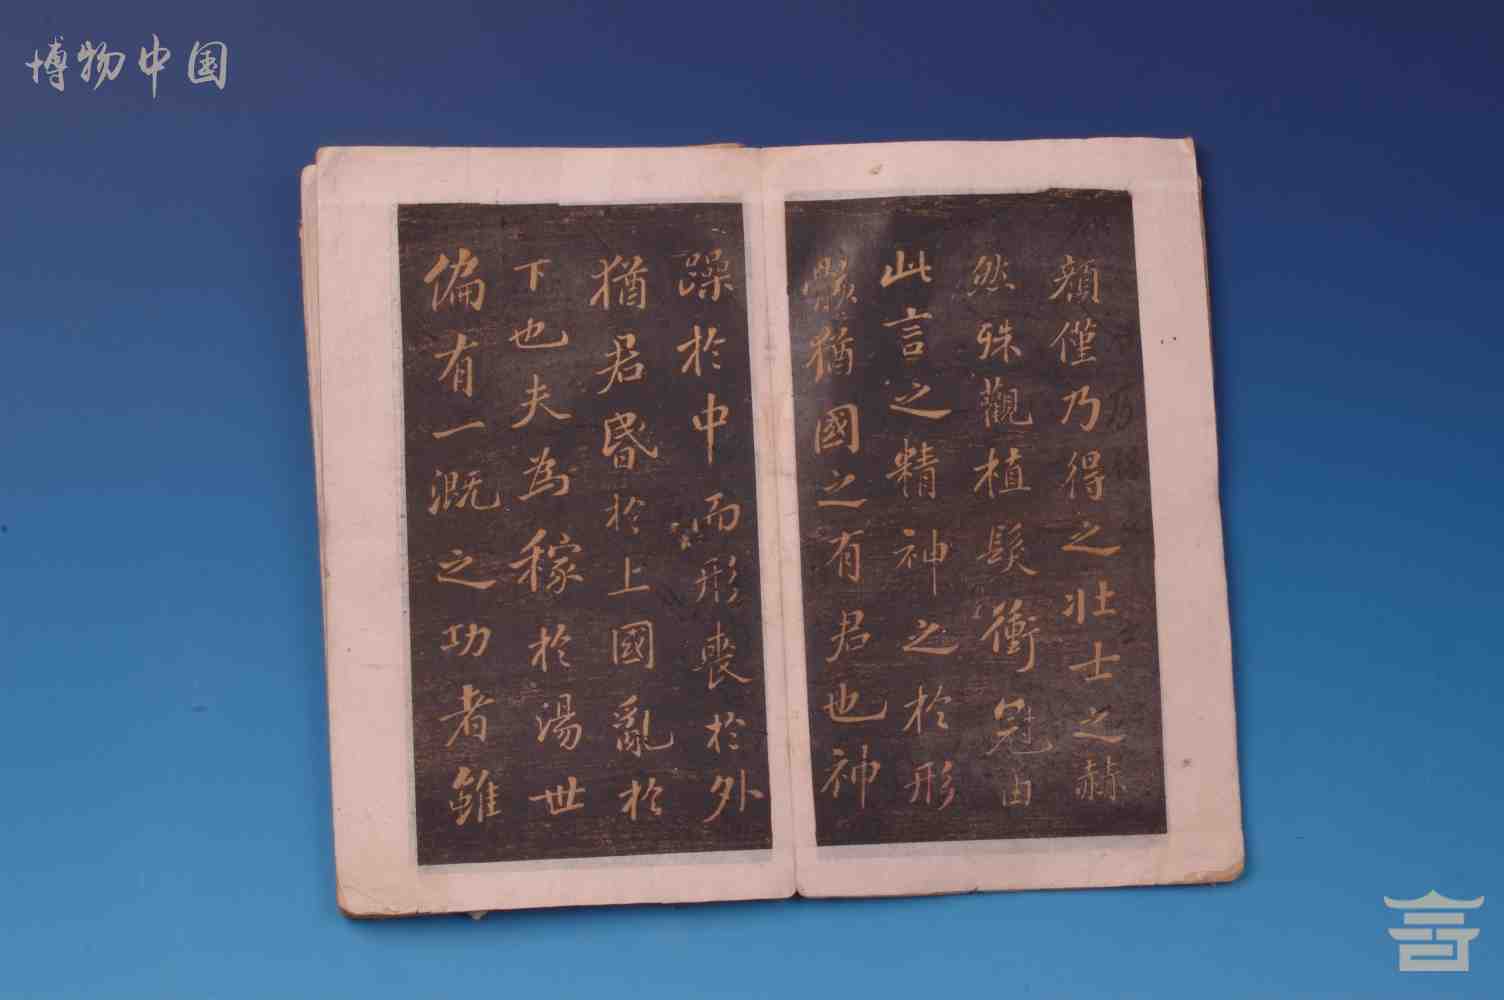 博物中国
顏僅乃得之壯士之赫
然殊觀植髮衝冠由
此言之精神之於形
骸猶國之有君也神
躁於中而形喪於外
猶君昬於上國亂於
下也夫為稼於湯世
偏有一溉之功者雖